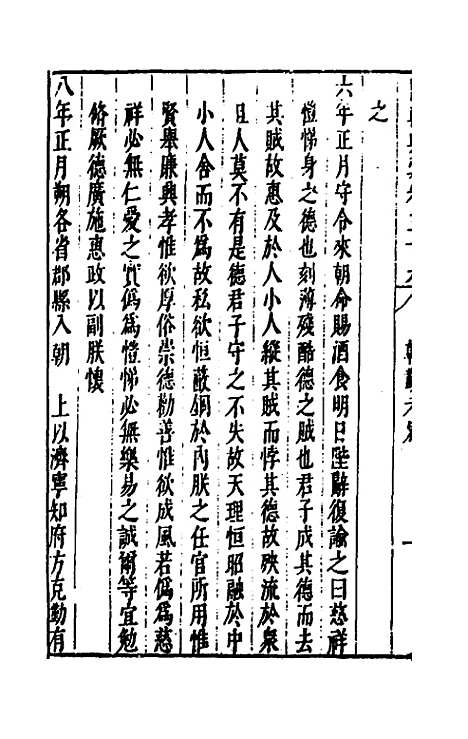 之
六年正月守令來朝命賜酒食明日陛辭復諭之曰慈祥
愷悌身之德也刻薄殘酷德之賊也君子成其德而去
其賊故惠及於人小人縱其賊而悖其德故殃流於衆
且人莫不有是德君子守之不失故天理恒昭融於中
小人舍而不爲故私欲恒蔽錮於內朕之任官所用惟
賢舉廉興孝惟欲厚俗崇德勸善惟欲成風若僞爲慈
祥必無仁愛之實僞爲愷悌必無樂易之誠爾等宜勉
脩厥德廣施惠政以副朕懷
八年正月朔各省郡縣入朝　上以濟寧知府方克勤有